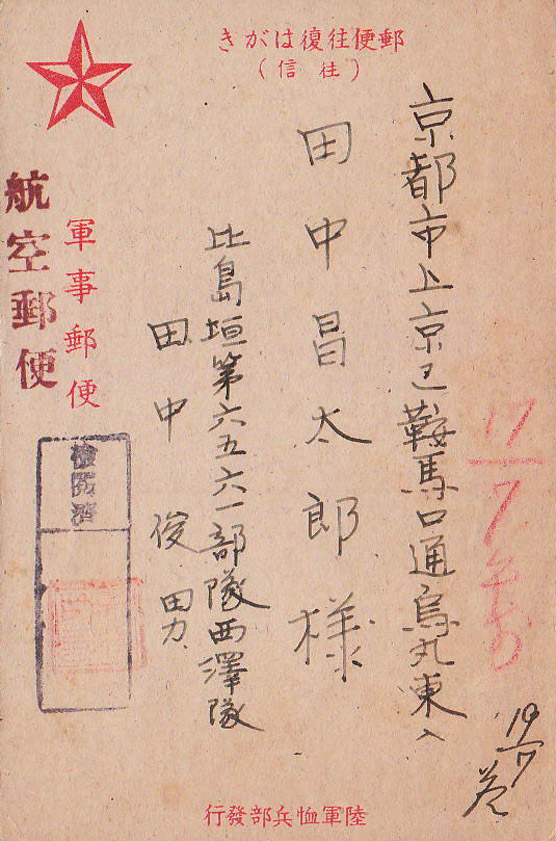 郵便往復はがき
(往信)
京都市上京区鞍馬口通烏丸東入
田中昌太郎様
比島垣第六五六一部隊西澤隊
田中俊男
軍事郵便
航空郵便
検閲済
17/7
19/7
陸軍恤兵部發行